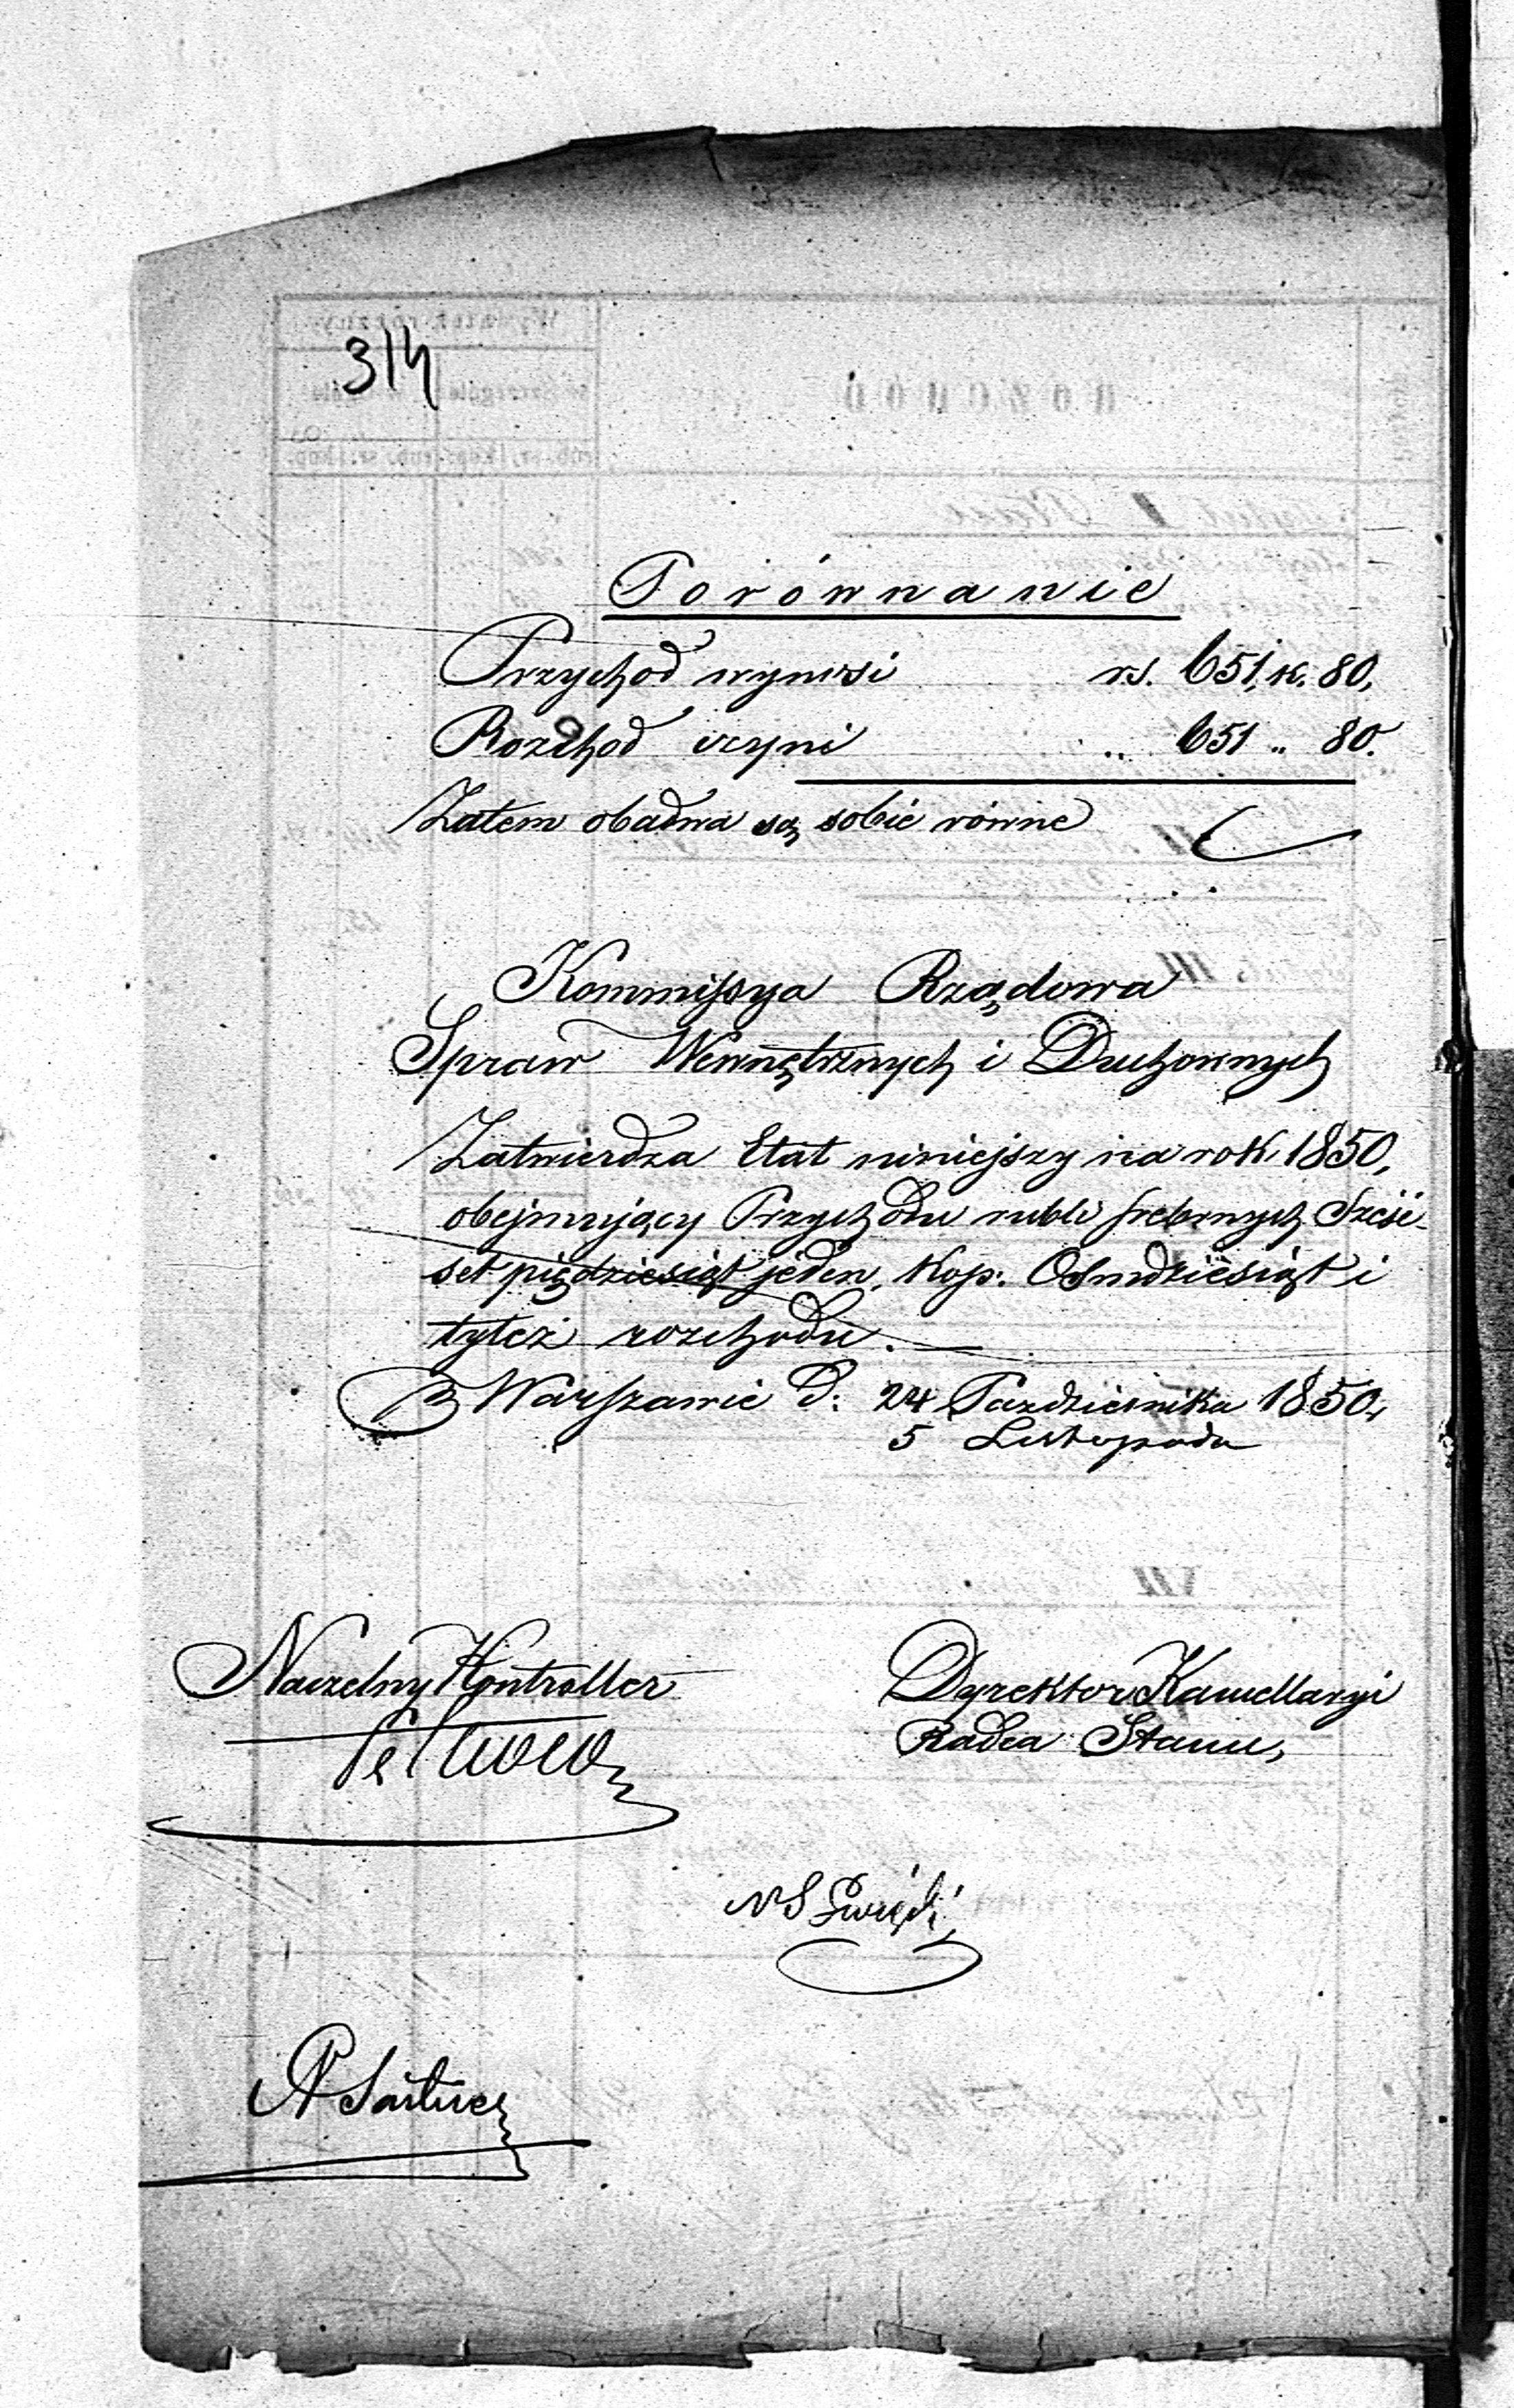 314
Porównanie
Przychod wynosi rs. 651, k. 80,
Rozchod czyni „ 651 „ 80.
Zatem obadwa są sobie równe
Kommissya Rządowa
Spraw Wewnętrznych i Duchownych
Zatwierdza Etat niniejszy na rok 1850,
obejmujący Przychodu rubli srebrnych Sześć-
set pięćdziesiąt jeden, kop: Osmdziesiąt i
tyleż rozchodu.
w Warszawie d: 24 Pazdziernika 1850,
5 Listopada
Naczelny Kontroller
Dyrektor Kancellaryi
Radca Stanu,